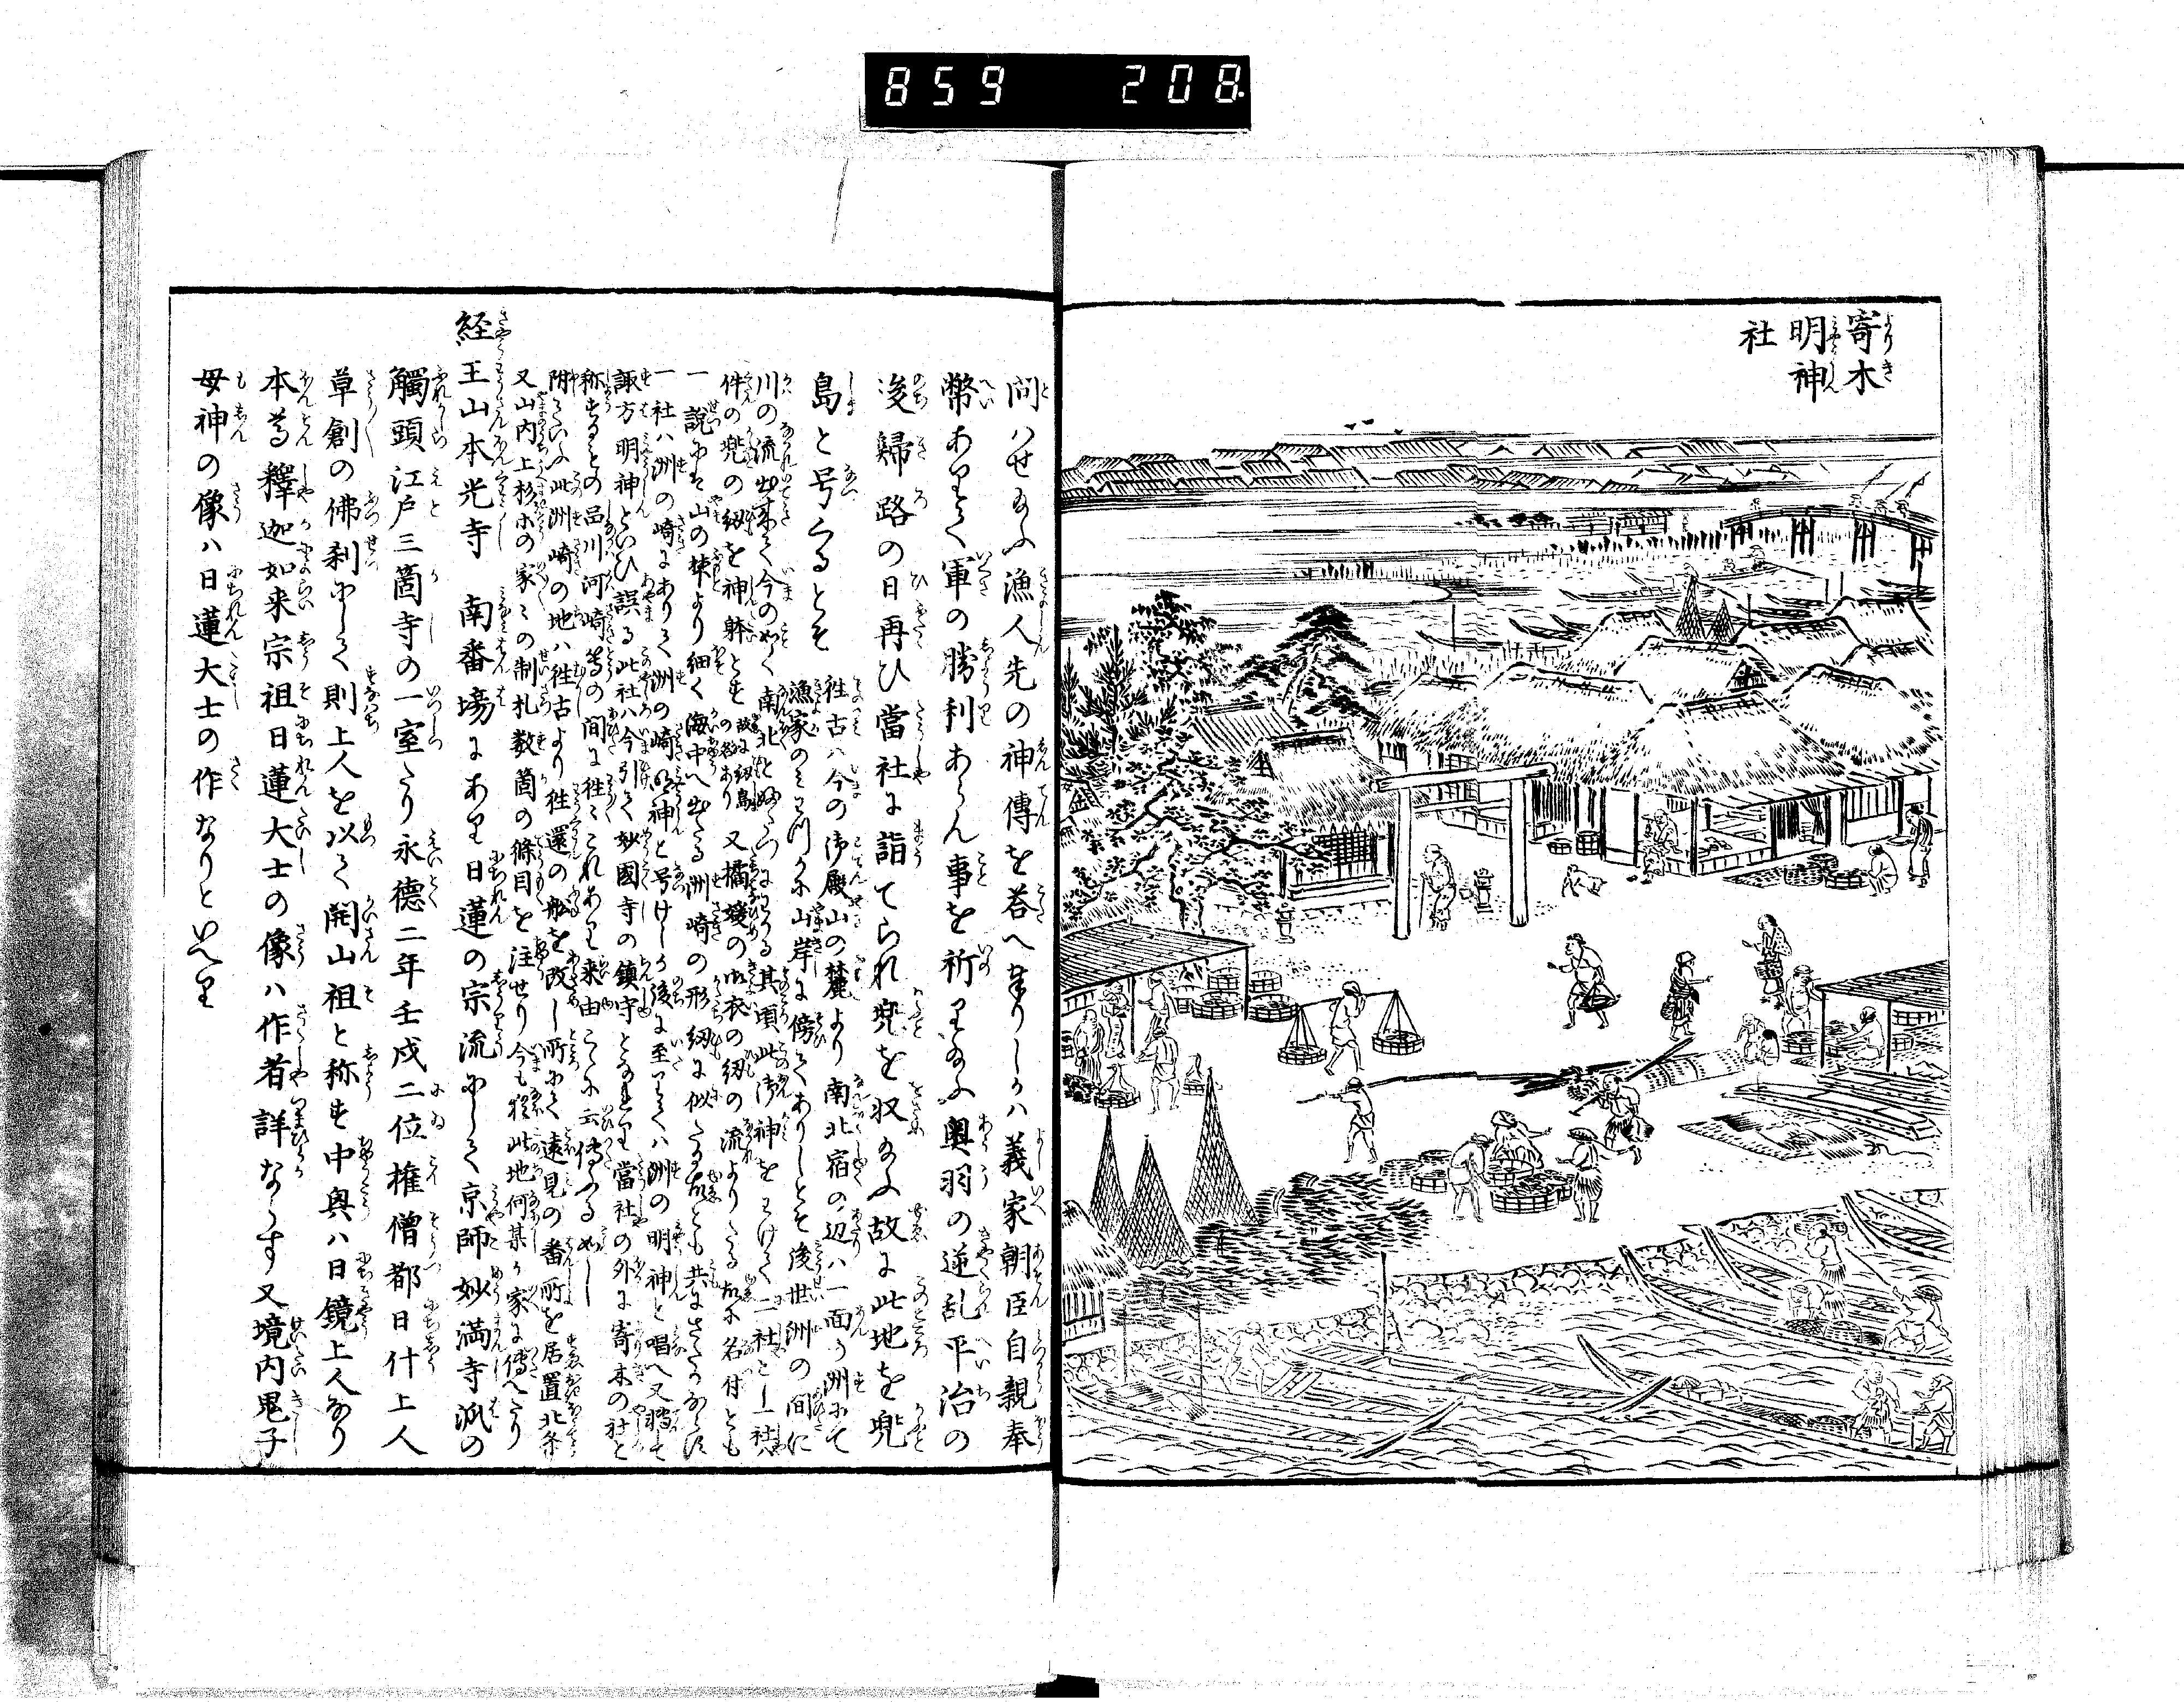 859 208
寄木
明神
社
問はせ給ふ漁人先の神傳を答へ奉りしかハ義家朝臣自親奉
幣ありて軍の勝利あらん事を祈り給ふ奥羽の逆乱平治の
後歸路の日再ひ當社に詣てられ兜を収給ふ故に此地を兜
島と号くるとそ
往古ハ今の御殿山の麓より南北宿の辺ハ一面の洲にて
漁家のミ
山岸に傍てありしとそ後世洲の間に
川の流出来て今の如く南北と
其頃此御神を
二社とし一社ハ
件の兜の
を神躰とす
又橘媛の御衣の
の流より
名付とも
一説に
山の
より細く海中へ出たる洲崎の形
に似たる故とも共に
一社ハ洲の崎にありて洲の崎明神と号けしか後に至りてハ洲の明神と唱へ又轉して
諏方明神といひ誤る此社ハ今引て妙國寺の鎮守となれり當社の外に寄木の社と
称するもの品川河崎等の間に往々これあり来由こゝに云傳ふる如し
此洲崎の地ハ往古より往還の船を改し所にて遠見の番所を居置北条
又山内上杉ホの家々の制札数箇の條目を注せり今も猶此地何某か家に傳へたり
経王山本光寺 南番場にあり日蓮の宗流にして京師妙満寺派の
觸頭江戸三箇寺の一室たり永德二年壬戌二位権僧都日什上人
草創の佛刹にして則上人を以て開山祖と称す中興ハ日鏡上人なり
本尊釋迦如来宗祖日蓮大士の像ハ作者詳ならす又境内鬼子
母神の像ハ日蓮大士の作なりといへり